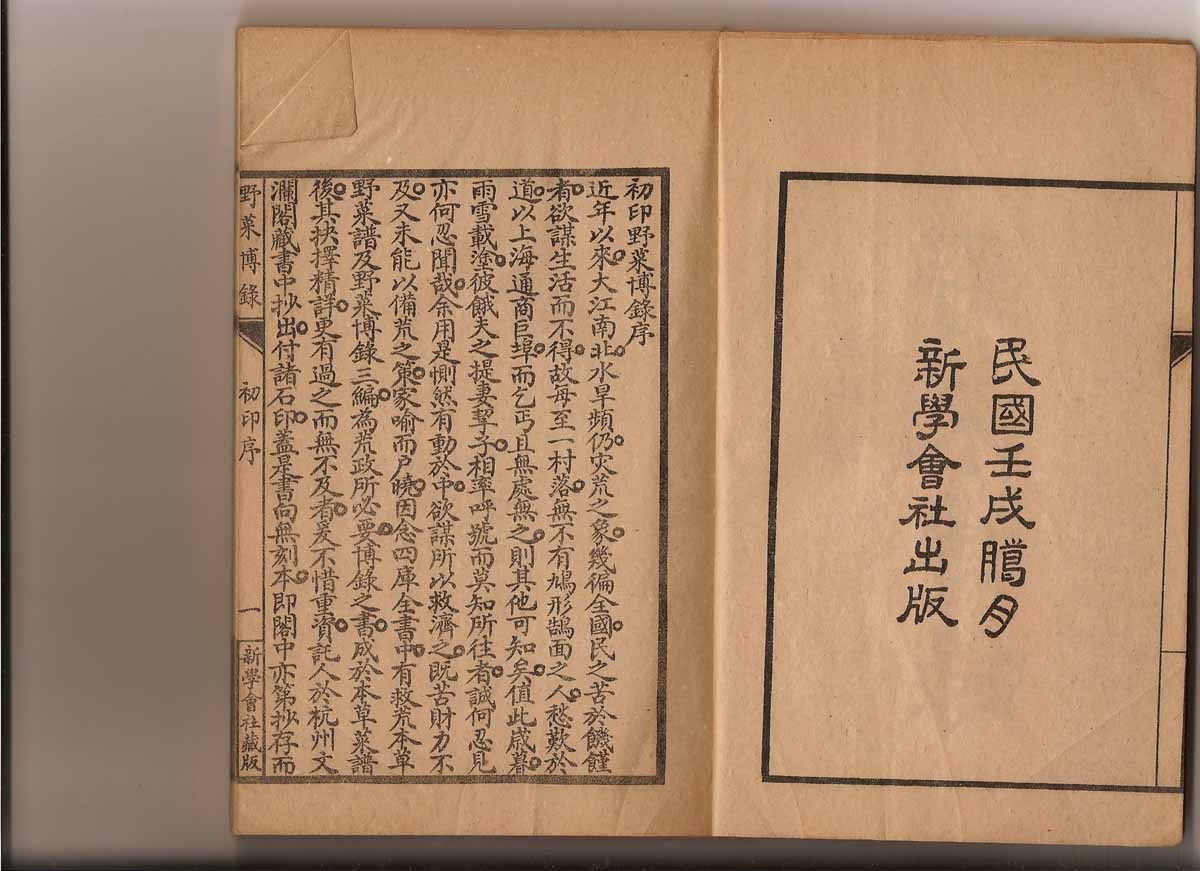 民國壬戌臘月
新學會社出版
初印野菜博錄序
近年以來大江南北水旱頻仍灾荒之象幾徧全國民之苦於饑饉
者欲謀生活而不得故每至一村落無不有鳩形鵠面之人愁歎於
道以上海通商巨埠而乞丐且無處無之則其他可知矣值此歲暮
雨雪載塗彼餓夫之提妻挈子相率呼號而莫知所往者誠何忍見
亦何忍聞哉余用是惻然有動於中欲謀所以救濟之既苦財力不
及又未能以備荒之策家喻而戶曉因念四庫全書中有救荒本草
野菜譜及野菜博錄三編為荒政所必要博錄之書成於本草菜譜
後其抉擇精詳更有過之而無不及者爰不惜重資託人於杭州文
瀾閣藏書中抄出付諸石印蓋是書向無刻本即閣中亦第抄存而
野菜博錄
初印序
一
新學會社藏版